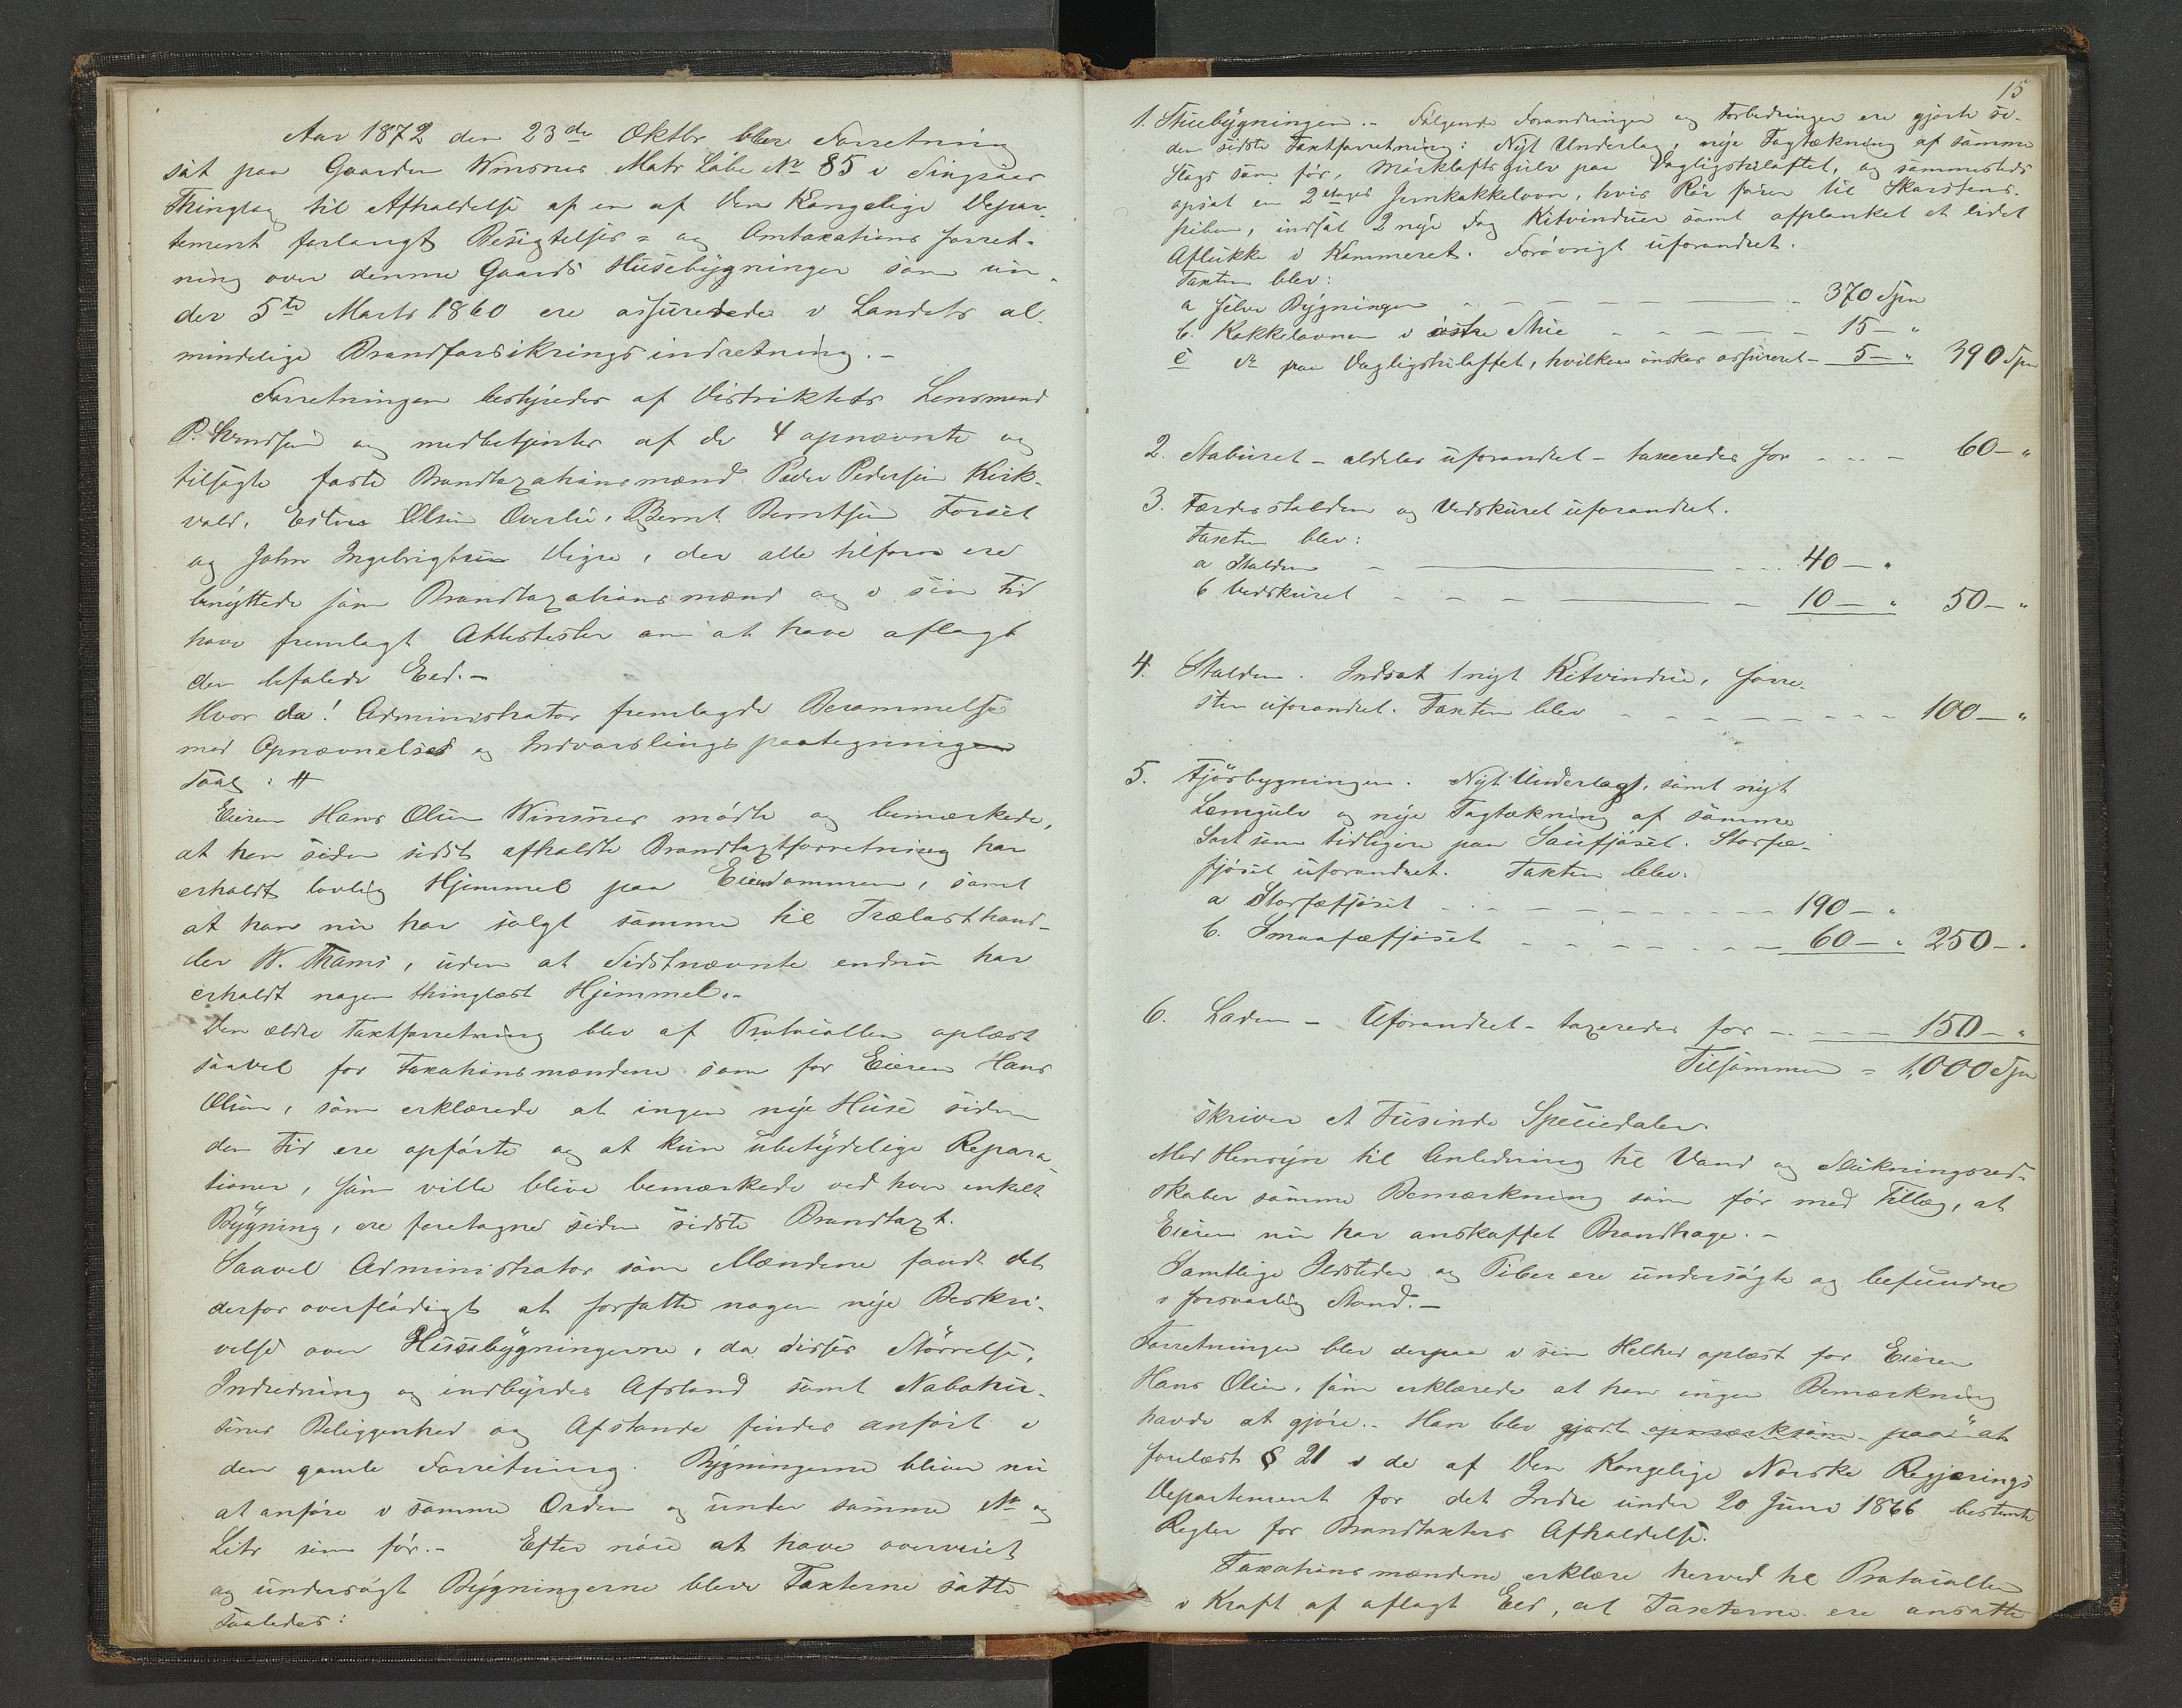 Aar 1872 den 23de Oktbr blev Forretning
sat paa Gaarden Winsnes Matr Løbe No 85 i Singsaas
Thinglag til Afholdelse af en af Den Kongelige Depar-
tement forlangt Besigtelses= og Omtaxations forret-
ning over denne Gaards Husebygninger som un-
der 5te Marts 1860 ere assurerede i Landets al-
mindelige Brandforsikringsindretning.-
Forretningen bestyredes af Distriktets Lensmand
P. og medbetjentes af de 4 opnævnte og
tilsagte faste Brandtaxationsmænd Peder Pedersen Kirk-
vold, Esten Olsen Overlie, Bernt Berntsen Forset
og John Ingebrigtsen Digre, der alle tilforn ere
benyttede som Brandtaxationsmænd og i sin Tid
have fremlagt Attestester om at have aflagt
den befalede Eed.-
Hvor da! Administrator fremlagde Berammelse
med Opnævnelses og Indvarslingspaategninger
saal: #
Eieren Hans Olsen Winsnes mødte og bemærkede,
at han siden sidst afholdte Brandtaxtforretning har
erholdt lovlig Hjemmel paa Eiendommen, samt
at han nu har solgt samme til Trælasthand-
ler W. Thams, uden at Sidstnævnte endnu har
erholdt nogen thinglæst Hjemmel.-
Den ældre Taxtforretning blev af Protocollen oplæst
saavel for Taxationsmændene som for Eieren Hans
Olsen, som erklærede at ingen nye Huse siden
den Tid ere opførte og at kun ubetydelige Repara-
tioner, som ville blive bemærkede ved hver enkelt
Bygning, ere foretagne siden sidste Brandtaxt.
Saavel Administrator som Mændene fandt det
derfor overflødigt at forfatte nogen nye Beskri-
velse over Husebygningerne, da disses Størrelse,
Indredning og indbyrdes Afstand samt Nabohu-
senes Beliggenhed og Afstande findes anført i
den gamle Forretning. Bygningerne bliver nu
at anføre i samme Orden og under samme No og
Litr som før.- Efter nøie at have overveiet
og undersøgt Bygningerne bleve Taxterne satte
saaledes:
15
1. Stuebygningen.- Følgende Forandringer og Forbedringer ere gjorte si-
den sidste Taxtforretning: Nyt Underlag, nye Tagtækning af samme
Slags som før, Mørkloftsgulv paa Dagligstuloftet, og sammesteds
opsat en 2 etages Jernkakkelovn, hvis Rør fører til Skorstens-
piben, indsat 2 nye Fag Kitvinduer samt afplanket et lidet
Aflukke i Kammeret. Forøvrigt uforandret.
Taxten blev:
a selve Bygningen - - - - - 370 Spn
b. Kakkelovnen i østre Stue - - - - 15 - "
c do paa Dagligstuloftet, hvilken ønskes assureret - 5 - " 390 Spn
2. Staburet - aldeles uforandret - taxeredes for - - - 60 - "
3. Færdesstalden og Vedskuret uforandret.
Taxten blev:
a Stalden - - - - 40 - "
b Vedskuret - - - - 10 - " 50 - "
4. Stalden. Indsat 1 nyt Kitvindue, forre-
sten uforandret. Taxten blev - - - - - - - 100 - "
5. Fjøsbygningen. Nyt Underlag, samt nyt
Lemgulv og nye Tagtækning af samme
Sort som tidligere paa Saufjøset. Storfæ-
fjøset uforandret. Taxten blev:
a Storfæfjøset - - - - - - 190 - "
b. Smaafæfjøset - - - - - - 60 - " 250 - "
6. Laden - Uforandret - taxeredes for - - - - 150 - "
Tilsammen = 1,000 Spn
skriver et Tusinde Speciedaler.
Med Hensyn til Anledning til Vand og Slukningsred-
skaber samme Bemærkning som før med Tillæg, at
Eieren nu har anskaffet Brandhage.-
Samtlige Ildsteder og Piber ere undersøgte og befundne
i forsvarlig Stand.-
Forretningen blev derpaa i sin Helhed oplæst for Eieren
Hans Olsen, som erklærede at han ingen Bemærkning
havde at gjøre.- Han blev gjort opmærksom paa at
forelæst § 21 i de af Den Kongelige Norske Regjerings
Departement for det Indre under 20 Juni 1866 bestemte
Regler for Brandtaxters Afholdelse.
Taxationsmændene erklære herved til Protocollen
i Kraft af aflagt Eed, at Taxterne ere ansatte